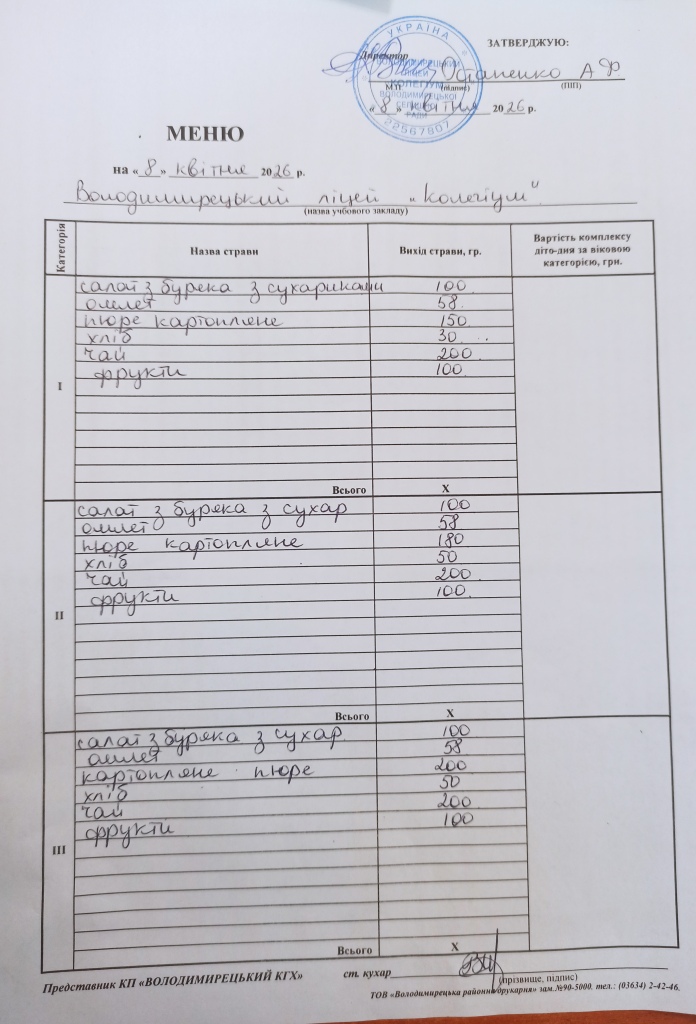 ЗАТВЕРДЖУЮ:
Директор
Остапенко А Ф
МП (підпис) (ПІП)
УКРАЇНА
ВОЛОДИМИРЕЦЬКИЙ
ЛІЦЕЙ
КОЛЕГІУМ
ВОЛОДИМИРЕЦЬКОЇ
СЕЛИЩНОЇ
РАДИ
22567907
« 8 » квітня 2026 р.
МЕНЮ
на « 8 » квітня 2026 р.
Володимирецький ліцей „Колегіум"
(назва учбового закладу)
Категорія Назва страви Вихід страви, гр. Вартість комплексу діто-дня за віковою категорією, грн.
I
салат з буряка з сухариками 100
омлет 58
пюре картопляне 150
хліб 30
чай 200
фрукти 100
Всього X
II
салат з буряка з сухар 100
омлет 58
пюре картопляне 180
хліб 50
чай 200
фрукти 100
Всього X
III
салат з буряка з сухар 100
омлет 58
картопляне пюре 200
хліб 50
чай 200
фрукти 100
Всього X
Представник КП «ВОЛОДИМИРЕЦЬКИЙ КГХ» ст. кухар
(прізвище, підпис)
ТОВ «Володимирецька районна друкарня» зам.№90-5000. тел.: (03634) 2-42-46.